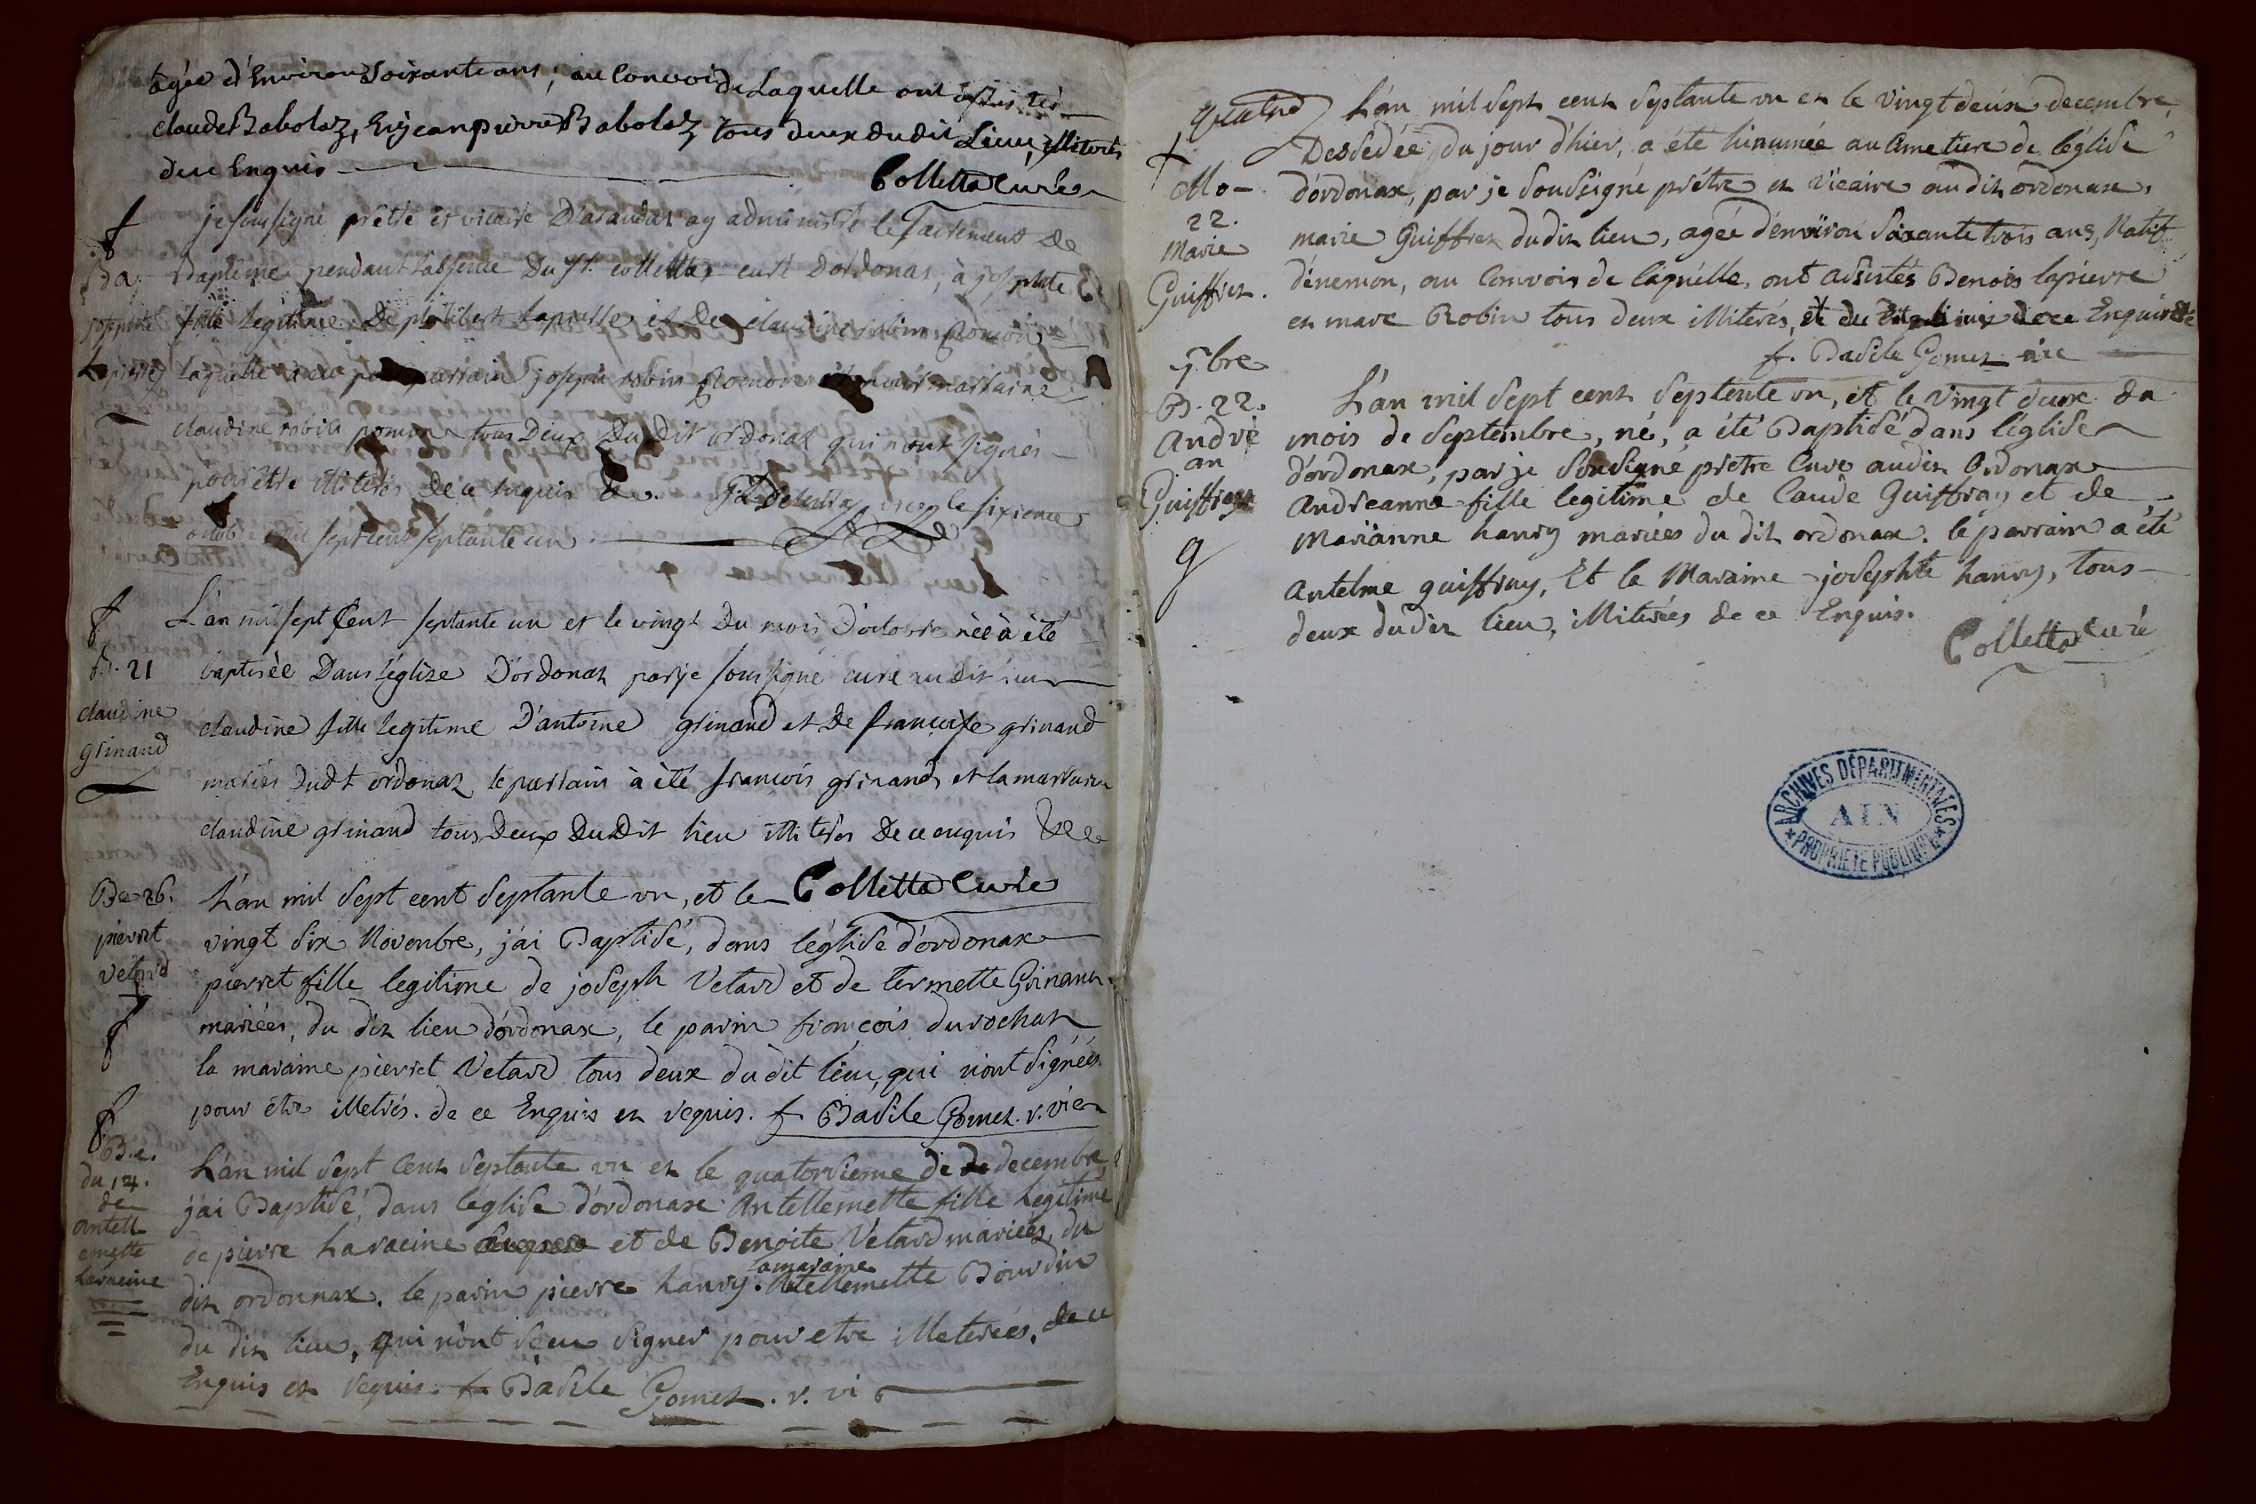 agée d'Environ Soixante ans, au Convoi de Laquelle ont assistés
claude Babolaz, Et jean pierre Babolaz tous deux dudit Lieu, illiterés
dece Enquis
Colletta Curé
je soussigné prêtre et vicaire D'arandaz ay administré le Sacrement de
Baptême pendant l'absence Du Sr. colletta curé Dordonas, à josephte
fille legitime De philibert Lapierre et De claudine robin
Laquelle a eu pour parrain joseph robin et pour marraine
claudine robin tous Deux Du Dit ordonas qui n'ont signés
pour être illiterés De ce enquis le sixieme
octobre mil sept cent septante un
Josephte
Lapierre
L'an mil sept Cent septante un et le vingt Du mois D'octobre née à été
B. 21
baptisée Dans l'églize D'ordonaz par je soussigné curé au dit lieu
claudine
grinand
claudine fille legitime D'antoine grinand et De françoise grinand
mariés Dudt ordonaz le parrain à été françois grinand, et la marraine
claudine grinand tous Deux Du Dit lieu illiterés De ce enquis
Colletta Curé
B 26.
pierret
Vetard
L'an mil Sept cent Septante un, et le
vingt Six Novenbre, j'ai Baptisé, dans l'églide d'ordonax
pierret fille legitime de joseph Vetard et de termette Grinand
mariées, du dit lieu d'ordonax, le parin françois durochat
la maraine pierret Vetard tous deux du dit lieu, qui n'ont Signées
pour être illetrés. de ce Enquis et requis. f. Basile Gomet. v. vic
B. e.
du 14.
de
antell
emette
Laracine
L'an mil Sept Cent Septante un et le quatorsieme de decembre
j'ai Baptisé, dans l'églide d'ordonax Antellemette fille Legitime
de pierre Laracine et de Benoite Vétard mariées, du
dit ordonnax. le parin pierre hanry. la maraine Antellemette Bourdin
du dit lieu, qui n'ont Sçeu Signer pour etre illeterées, de ce
Enquis et requis. f Basile Gomet. v. vi
L'an mil Sept cent Septante un et le Vingt deux decembre,
Desçedée du jour d'hier, a été hinumée au Cimetiere de l'églide
Mo-
22.
Marie
Guiffret.
d'ordonax, par je Soussigné prêtre et Vicaire au dit ordonax,
marie Guiffret du dit lieu, agée d'environ Soixante trois ans, Natif
d'enemon, au Convois de laquélle, ont assistés Benois lapierre
et marc Robin tous deux illiterés, de ce Enquis
f. Basile Gomet vic
7.bre
B. 22.
André
an
Guiffray
L'an mil Sept cent Septente un, et le Vingt deux du
mois de Septembre, né, a été Baptisé dans l'églide
d'ordonax, par je Soussigné prêtre Curé audit Ordonax
Andréanne fille legitime de Claude Guiffray et de
Marianne hanry mariées du dit ordonax. le parrain a été
Antelme guiffray, Et la Maraine josephte hanry, tous
deux dudit lieu, illiterées de ce Enquis.
Colletta curé
ARCHIVES DÉPARTEMENTALES
AIN
PROPRIÉTÉ PUBLIQUE